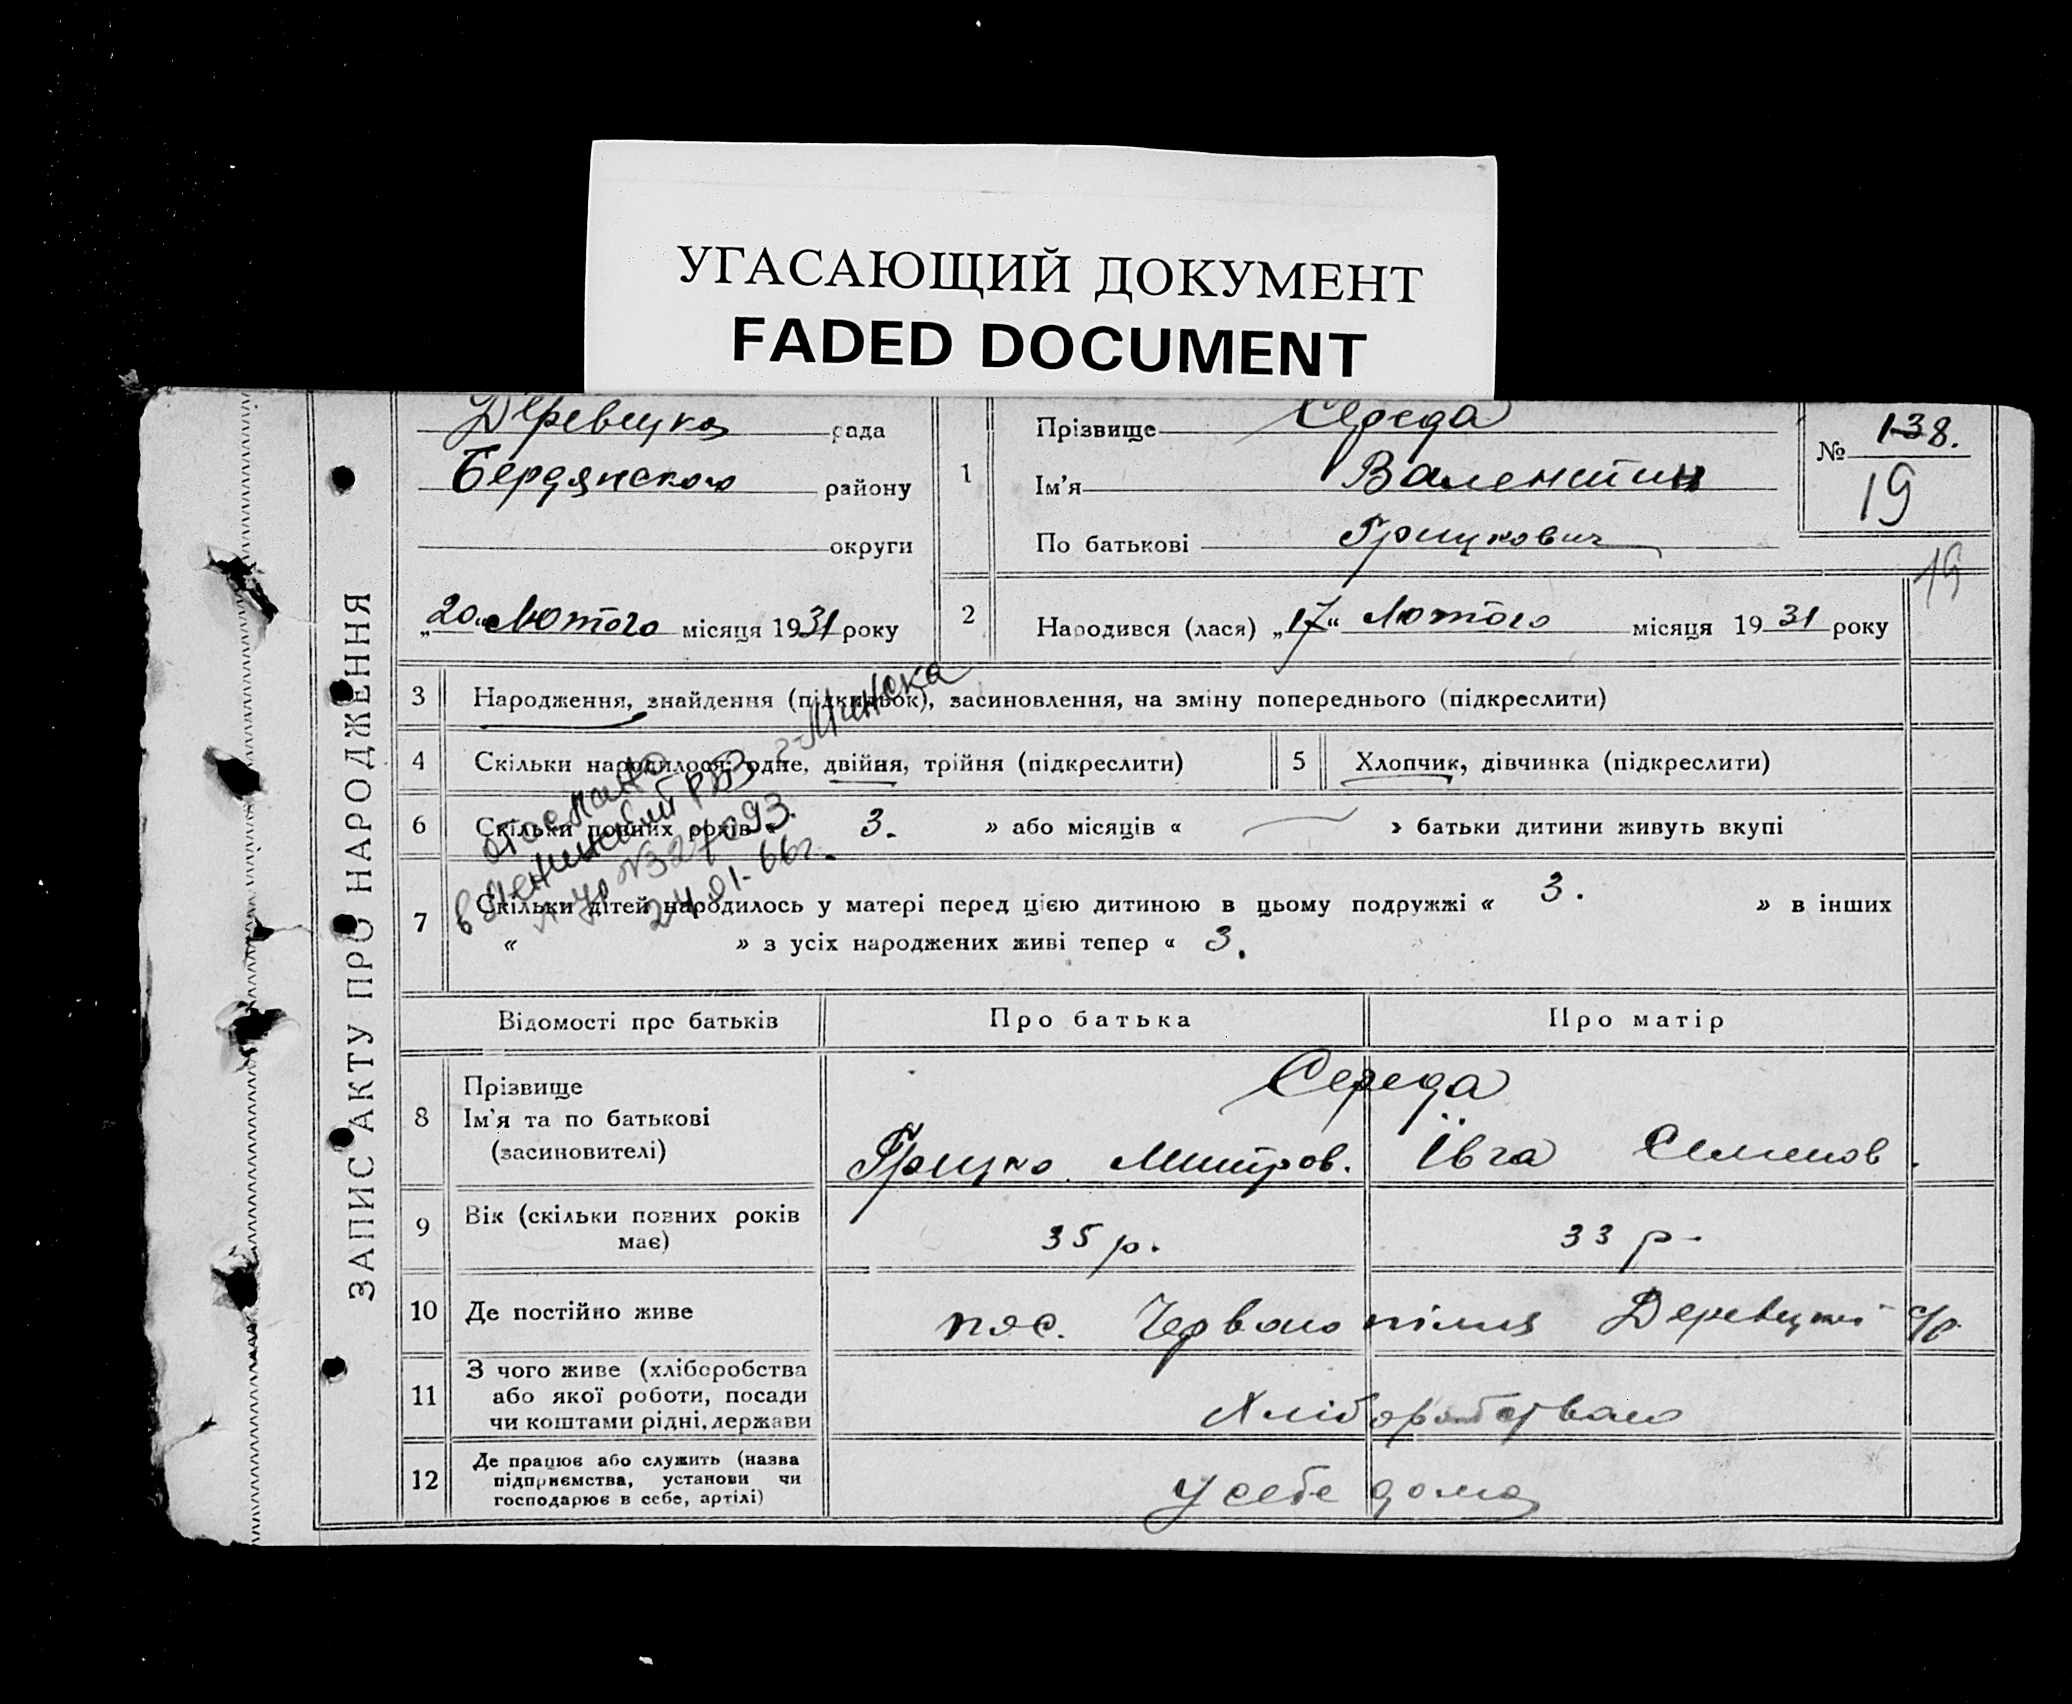 УГАСАЮЩИЙ ДОКУМЕНТ
FADED DOCUMENT
ЗАПИС АКТУ ПРО НАРОДЖЕННЯ
Деревецка рада
Бердянского району
округи
„20“ Лютого місяця 1931 року
1
Прізвище Середа
Ім'я Валентин
По батькові Грицкович
№ 138.
19
19
2
Народився (лася) „17“ Лютого місяця 1931 року
3 Народження, знайдення (підкидьок), засиновлення, на зміну попереднього (підкреслити)
4 Скільки народилося: одне, двійня, трійня (підкреслити)
5 Хлопчик, дівчинка (підкреслити)
6 Скільки повних років « 3. » або місяців « » батьки дитини живуть вкупі
7 Скільки дітей народилось у матері перед цією дитиною в цьому подружжі « 3. » в інших
« » з усіх народжених живі тепер « 3.
отослано
в Ленинский РВЗ г. Минска
№327093.
24.01-66г.
Відомості про батьків Про батька Про матір
8 Прізвище
Ім'я та по батькові
(засиновителі)
Середа
Грицко Митров. Івга Семенов.
9 Вік (скільки повних років
має)
35 р. 33 р.
10 Де постійно живе пос. Червонопілля Деревецкої с/р.
11 З чого живе (хліборобства
або якої роботи, посади
чи коштами рідні, держави
Хліборобством
12 Де працює або служить (назва
підприємства, установи чи
господарює в себе, артілі)
у себе дома